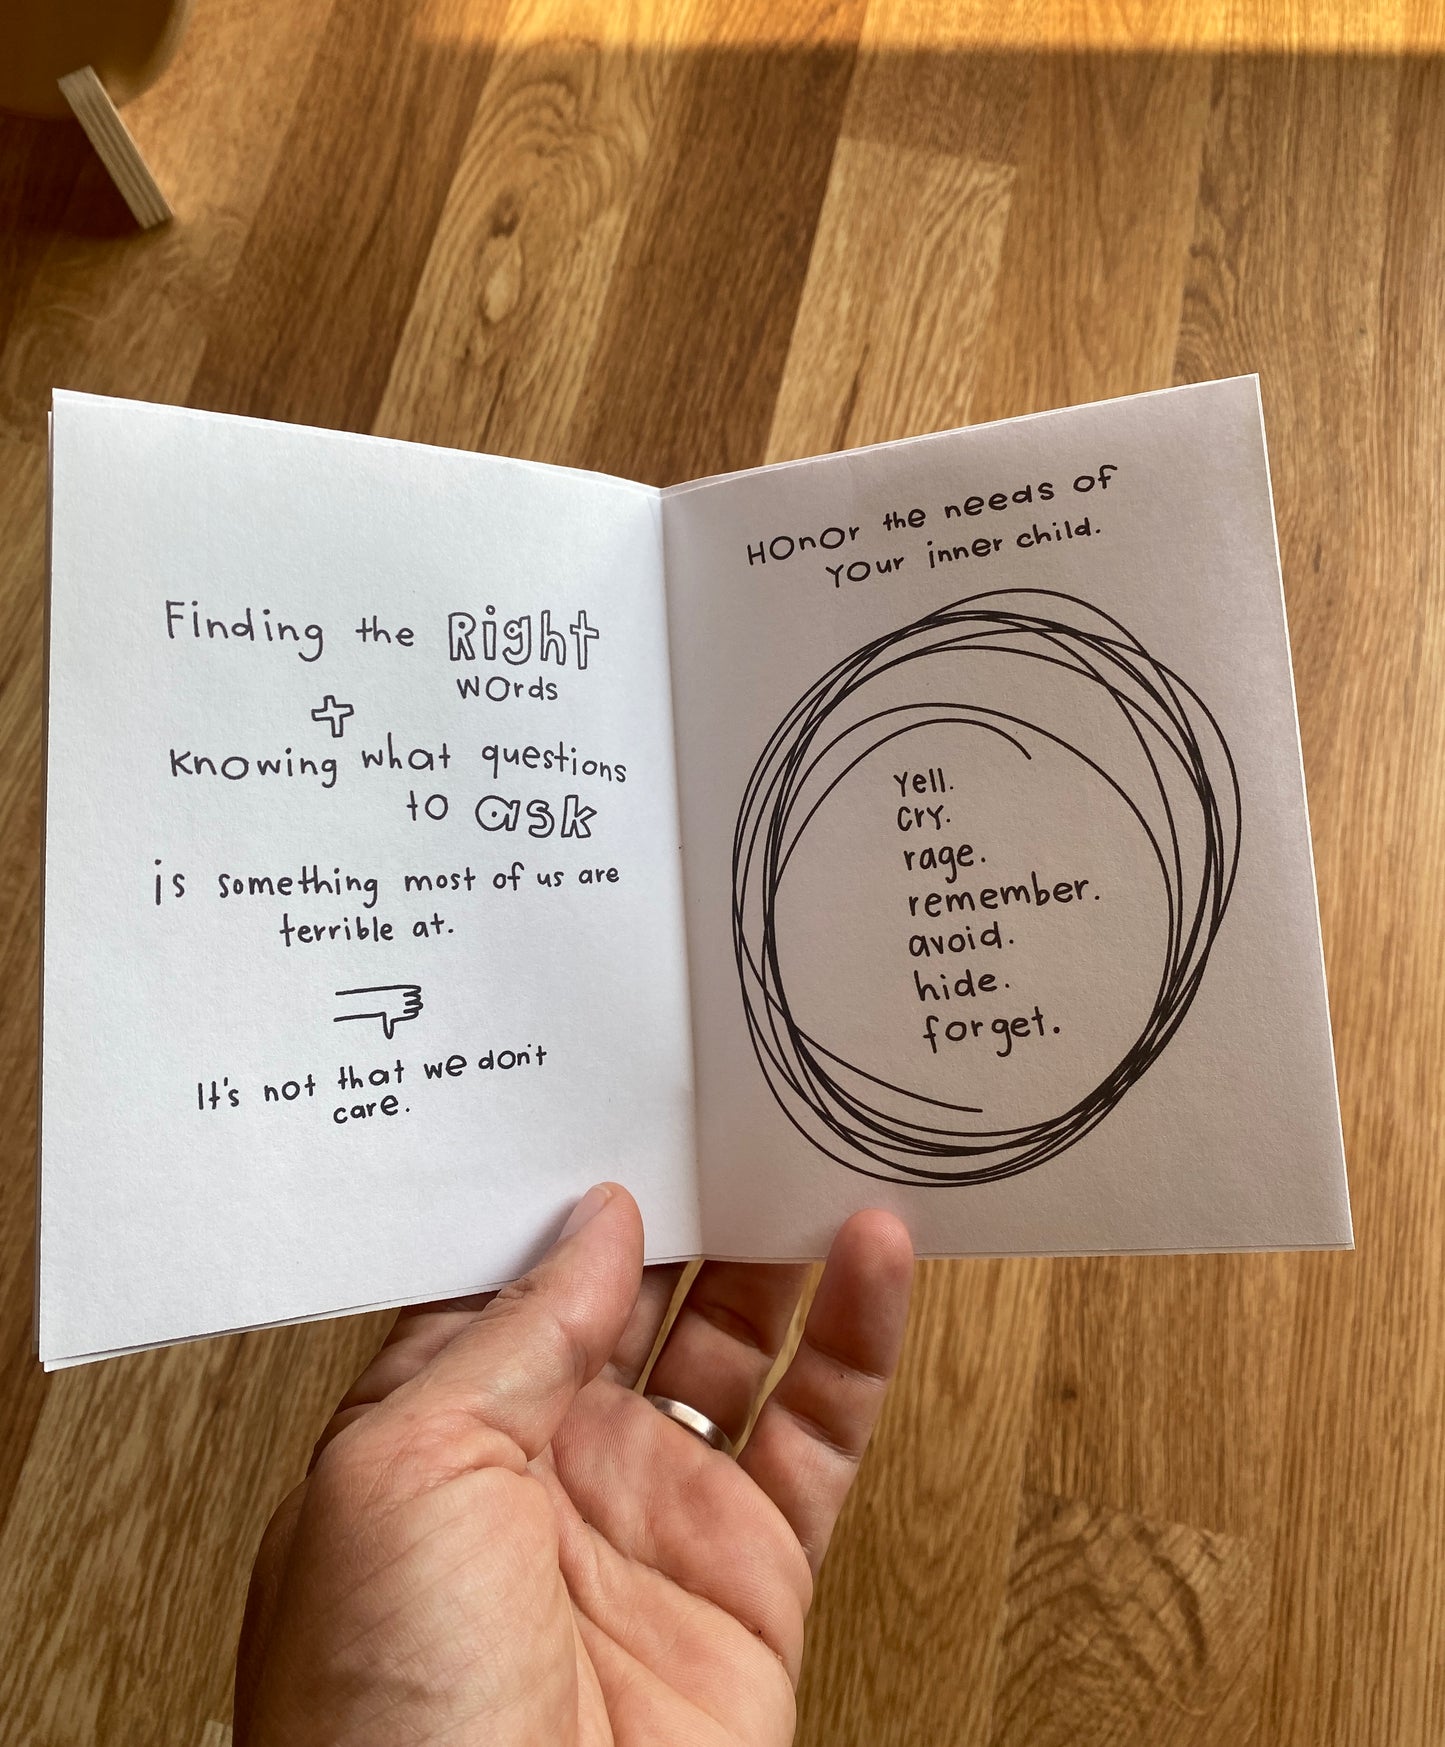 Finding the Right
words
+
Knowing what questions
to ask
is something most of us are
terrible at.
It's not that we don't
care.
Honor the needs of
your inner child.
Yell.
cry.
rage.
remember.
avoid.
hide.
forget.